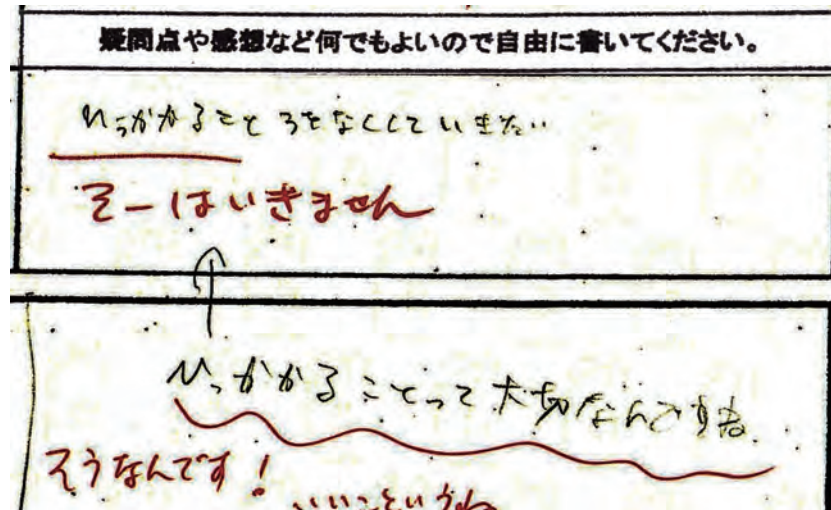 疑問点や感想など何でもよいので自由に書いてください。
ひっかかることろをなくしていきたい
そーはいきません
ひっかかることって大切なんですね
そうなんです!
いいこというね